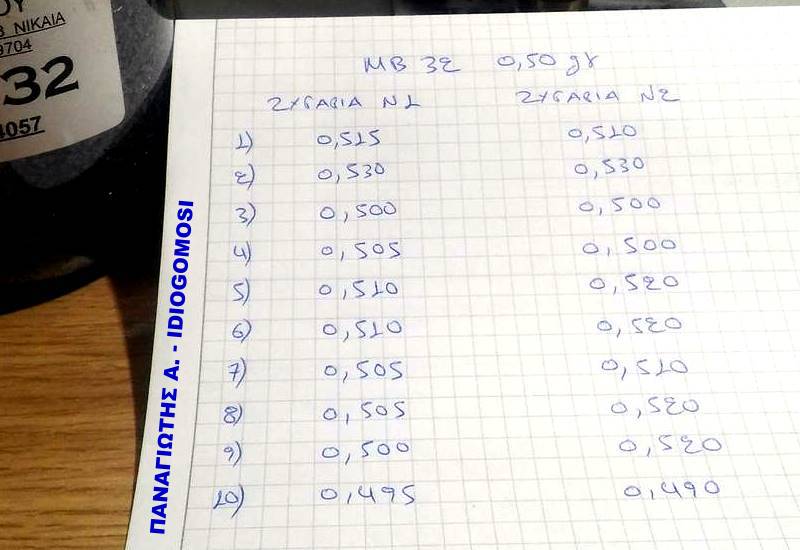 ΟΥ
Β ΝΙΚΑΙΑ
9704
32
4057
ΜΒ 32 0,50 gr
ΖΥΓΑΡΙΑ Ν1 ΖΥΓΑΡΙΑ Ν2
1) 0,515 0,510
2) 0,530 0,530
3) 0,500 0,500
4) 0,505 0,500
5) 0,510 0,520
6) 0,510 0,520
7) 0,505 0,510
8) 0,505 0,520
9) 0,500 0,520
10) 0,495 0,490
ΠΑΝΑΓΙΩΤΗΣ Α. - IDIOGOMOSI